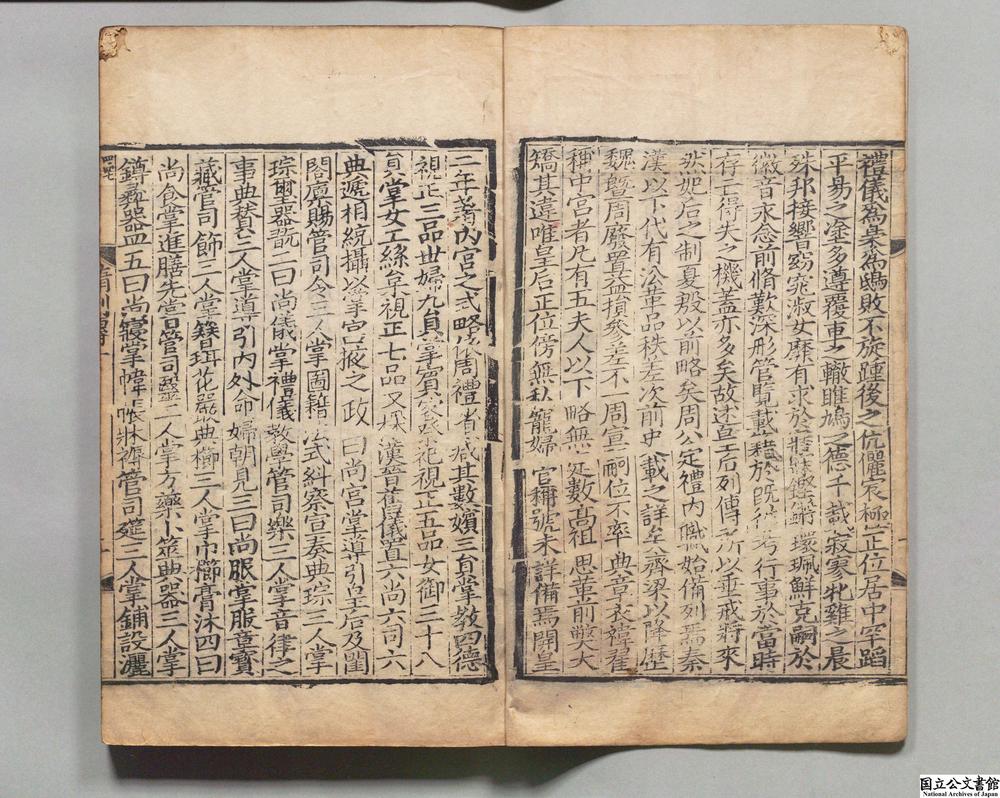 禮儀爲梟爲鴟敗不旋踵後之伉儷宸極正位居中罕蹈
平易之塗多遵覆車之轍雎鳩之德千載寂寥牝雞之晨
殊邦接響窈窕淑女靡有求於寤寐鏗鏘環珮鮮克嗣於
徽音永念前脩歎深彤管覽載籍於既往考行事於當時
存亡得失之機蓋亦多矣故述皇后列傳所以垂戒將來
然妃后之制夏殷以前略矣周公定禮內職始備列焉秦
漢以下代有沿革品秩差次前史載之詳矣齊梁以降歷
魏曁周廢置益損參差不一周宣嗣位不率典章衣褘翟
稱中宮者凡有五夫人以下略無定數高祖思革前弊大
矯其違唯皇后正位傍無私寵婦官稱號未詳備焉開皇
二年著內宮之式略依周禮省減其數嬪三員掌教四德
視正三品世婦九員掌賓客祭祀視正五品女御三十八
員掌女工絲枲視正七品又采漢晉舊儀置六尚六司六
典遞相統攝以掌宮掖之政曰尚宮掌導引皇后及閨
閤廩賜管司令三人掌圖籍法式糾察宣奏典琮三人掌
琮璽器翫二曰尚儀掌禮儀教學管司樂三人掌音律之
事典贊三人掌導引內外命婦朝見三曰尚服掌服章寶
藏管司飾三人掌簪珥花嚴典櫛三人掌巾櫛膏沐四曰
尚食掌進膳先嘗管司醫三人掌方藥卜筮典器三人掌
鐏彝器皿五曰尚寢掌幃帳牀褥管司筵三人掌鋪設灑
国立公文書館
National Archives of Japan